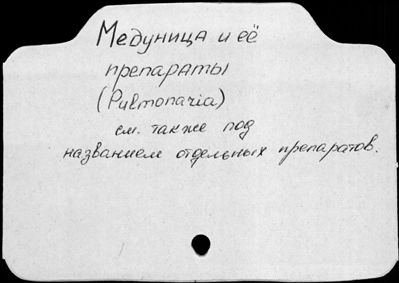 Медуница и её
препараты
(Pulmonaria)
см. также под
названием отдельных препаратов.